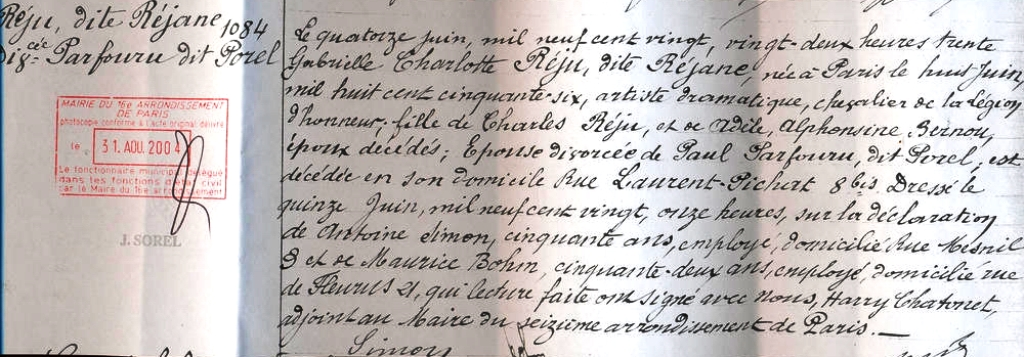 Réju, dite Réjane
1084
Parfouru dit Porel
MAIRIE DU 16e ARRONDISSEMENT
DE PARIS
photocopie conforme à l'acte original délivré
le 31. AOU. 2004
Le fonctionnaire municipal délégué
dans les fonctions d'état civil
par le Maire du 16e arrondissement
J. SOREL
Le quatorze juin, mil neuf cent vingt, vingt-deux heures trente
Gabrielle Charlotte Réju, dite Réjane, née à Paris le huit Juin,
mil huit cent cinquante-six, artiste dramatique, chevalier de la Légion
d'honneur; fille de Charles Réju, et de Adèle, Alphonsine Bernou,
époux décédés; Epouse divorcée de Paul Parfouru, dit Porel, est
décédée en son domicile Rue Laurent-Pichart 8 bis. Dressé le
quinze Juin, mil neuf cent vingt, onze heures, sur la déclaration
de Antoine Simon, cinquante ans, employé, domicilié Rue Mesnil
8 et de Maurice Bohm, cinquante-deux ans, employé, domicilié rue
de Fleurus 21, qui lecture faite ont signé avec Nous, Harry Chatonet,
adjoint au Maire du seizième arrondissement de Paris.—
Simon